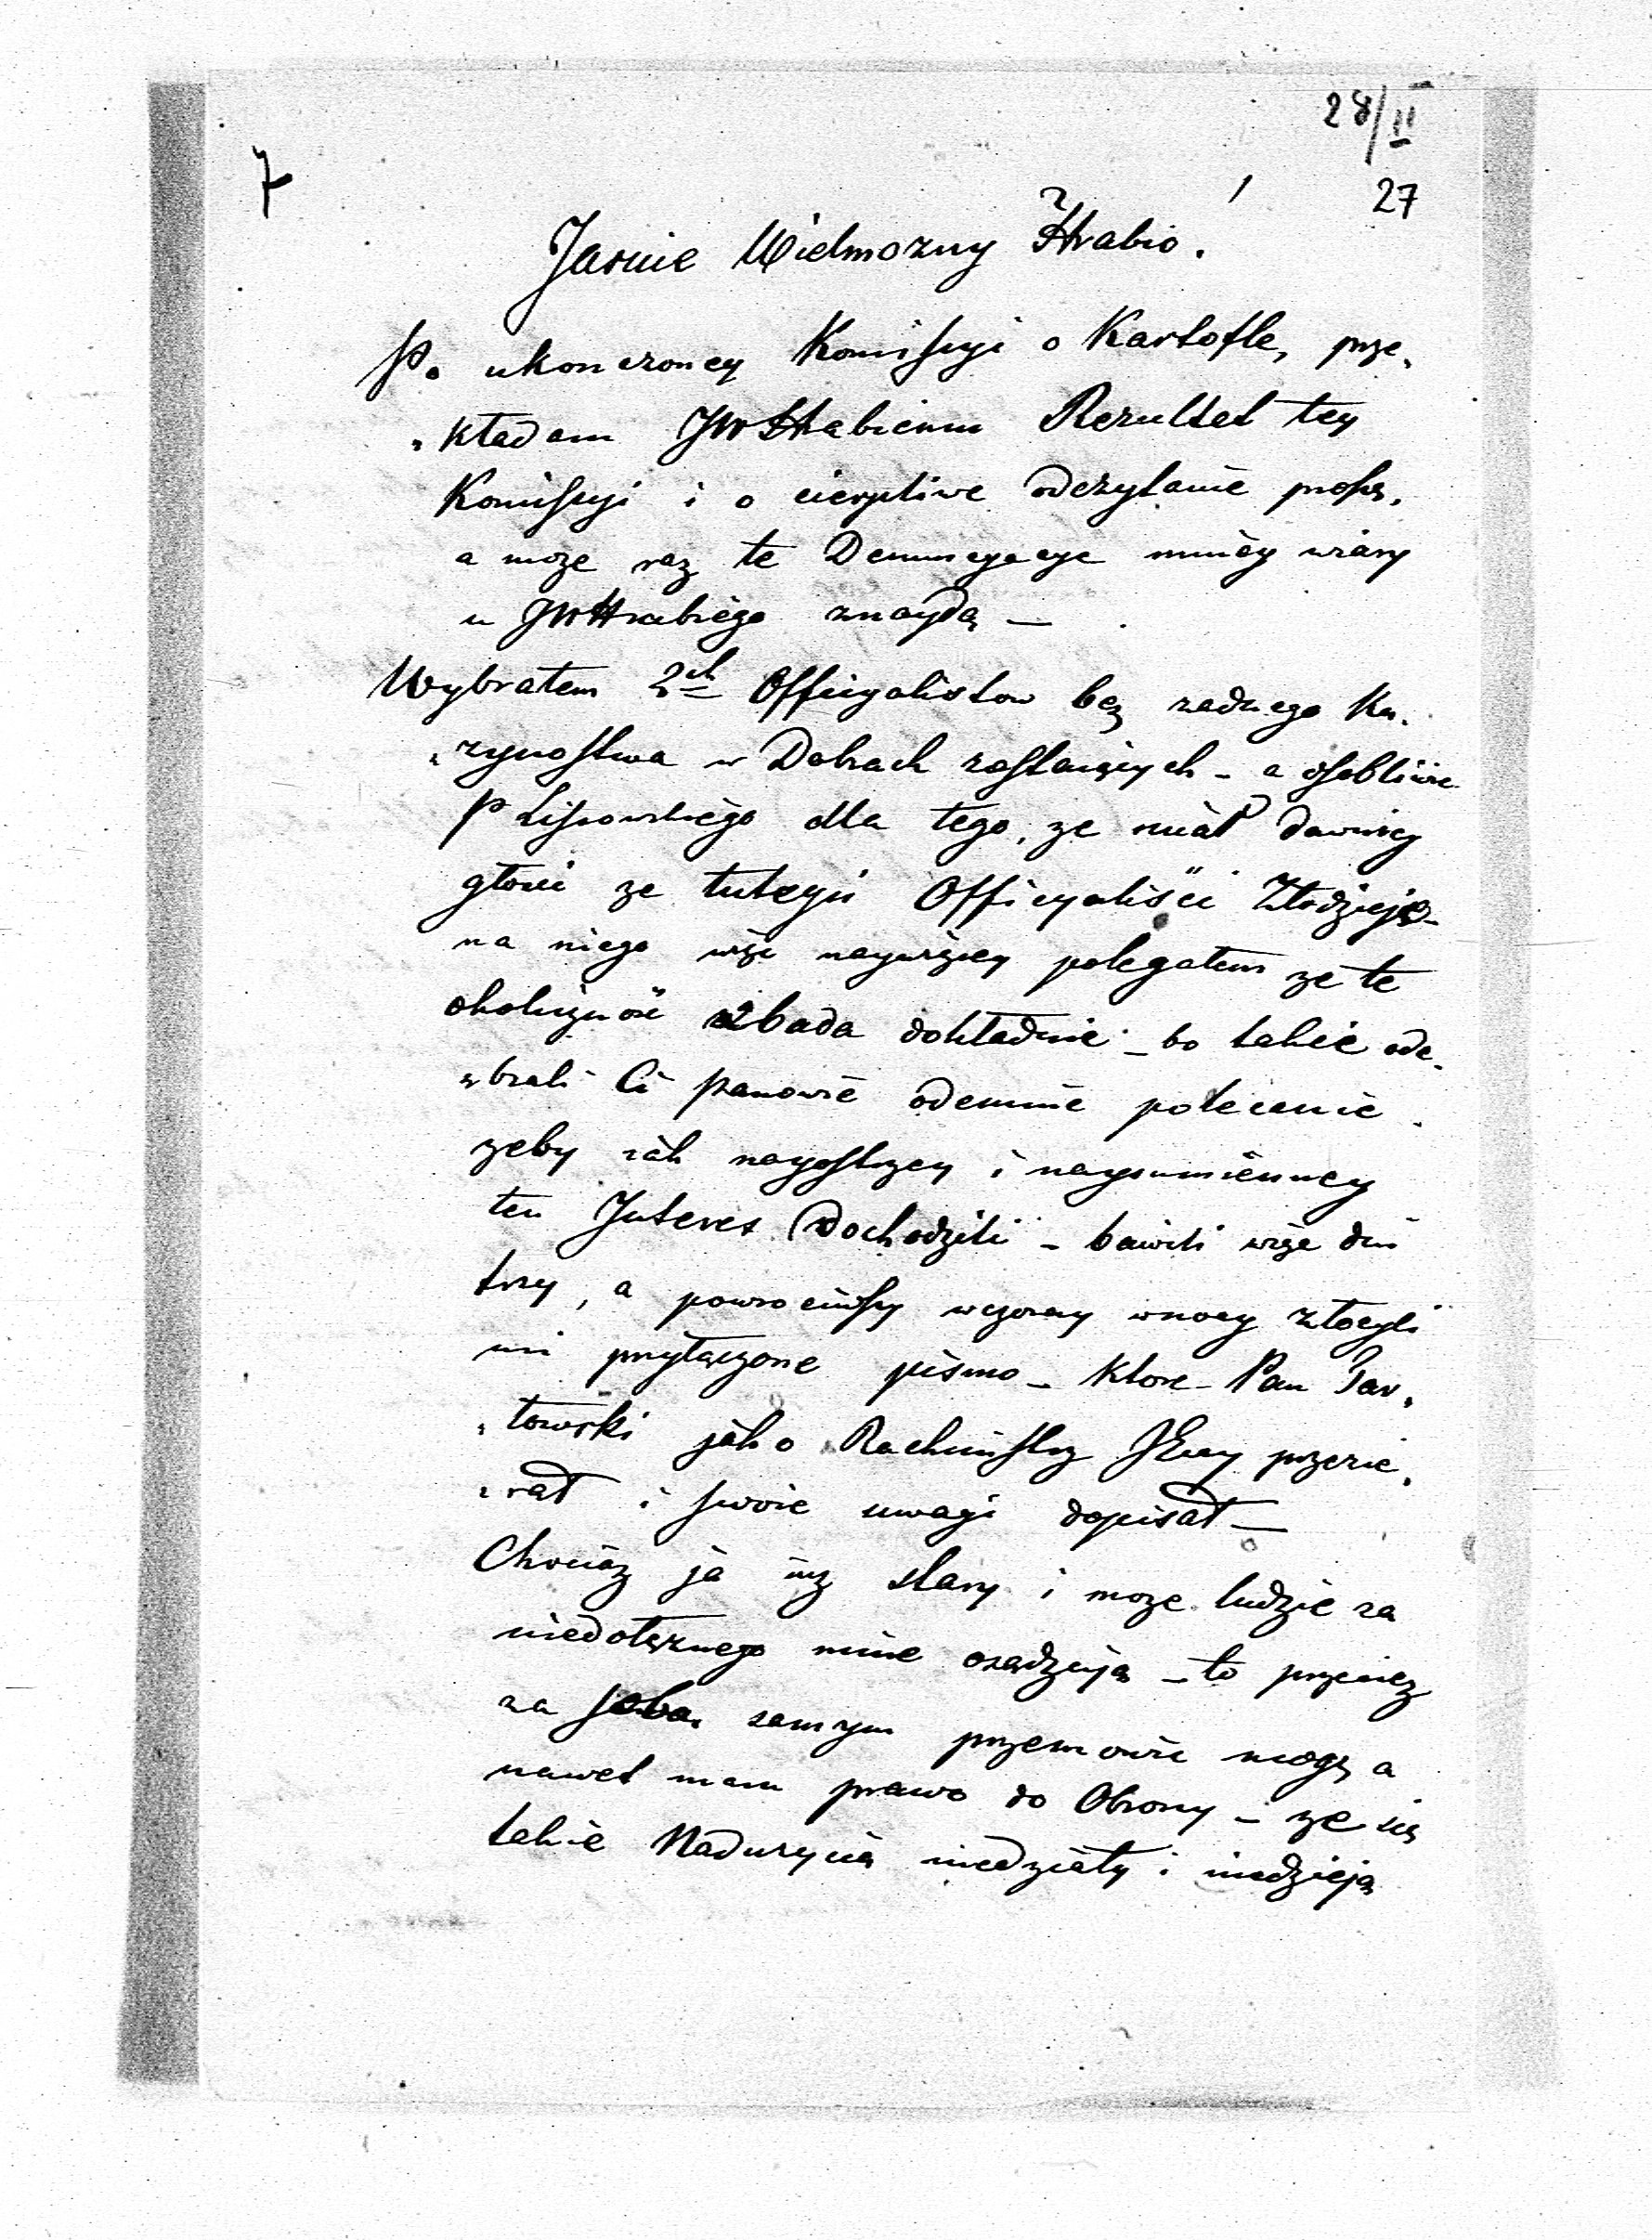 28/II
7
27
Jasnie Wielmozny Hrabio!
Po ukonczoney Komissyi o Kartofle, prze„
„kładam JWHrabiemu Rezultat tey
Komissyi i o cierpliwe odczytanie proszę,
a moze raz te Denuncyacye mniey wiary
u JWHrabiego znaydą —
Wybrałem 2ch Officyalistow bez zadnego Ku„
„zynostwa w Dobrach zostaiących - a osobliwie
P Lissowskiego dla tego, ze miał dawniey
głosic ze tuteysi Officyalisci Złodzieje -
na niego więc naywięcey polegałem ze te
okolicznosc zbada dokładnie - bo takie ode„
„brali Ci panowie odemnie polecenie
zeby iak nayostrzey i naysumienney
ten Interes dochodzili - bawili więc dni
trzy, a powrociwszy wczoray wnocy złozyli
mi przyłączone pismo - ktore Pan
„towski jako Rachmistrz przezie„
„rał i swoie uwagi dopisał —
Chociaz ja iuz stary i moze ludzie za
niedołęznego mnie osądzają - to przeciez
za sobą samym przemowic mogę a
nawet mam prawo do Obrony - ze się
takie Naduzycia niedziały i niedzieją